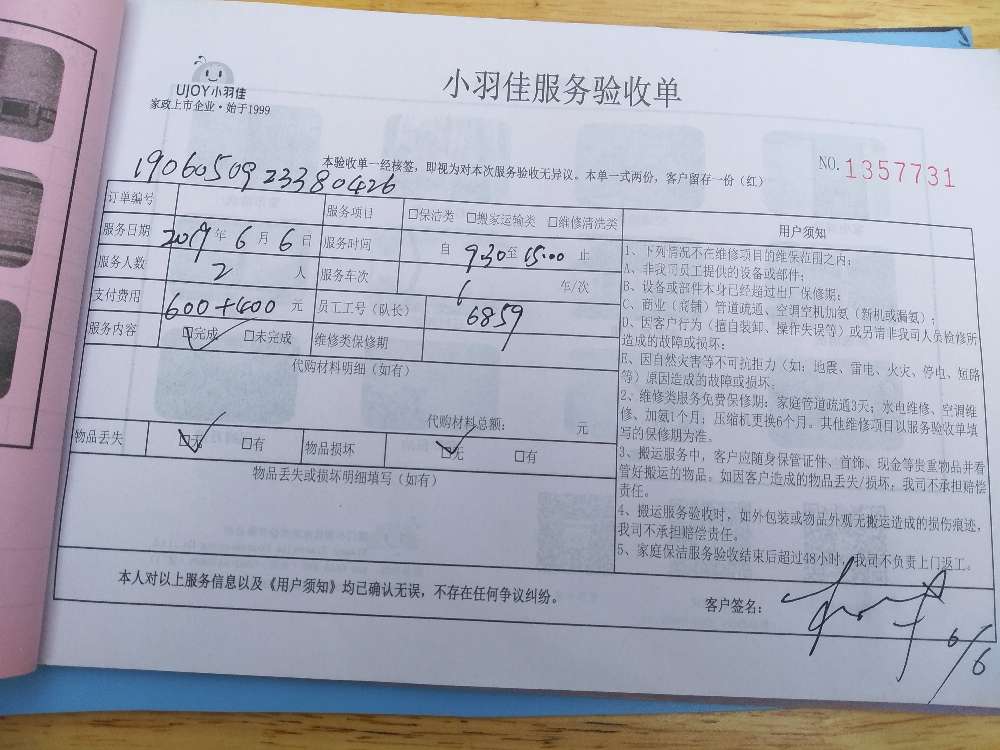 UJOY小羽佳
家政上市企业·始于1999
小羽佳服务验收单
本验收单一经核签，即视为对本次服务验收无异议。本单一式两份，客户留存一份（红）
NO.1357731
1906050923380426
订单编号 服务项目 □保洁类 □搬家运输类 □维修清洗类
服务日期 2019年6月6日 服务时间 自 930至15:00 止
服务人数 2 人 服务车次 6 车/次
支付费用 600+400 元 员工工号（队长） 6859
服务内容 □完成 □未完成 维修类保修期
代购材料明细（如有）
代购材料总额： 元
物品丢失 □无 □有 物品损坏 □无 □有
物品丢失或损坏明细填写（如有）
用户须知
1、下列情况不在维修项目的维保范围之内：
A、非我司员工提供的设备或部件；
B、设备或部件本身已经超过出厂保修期；
C、商业（商铺）管道疏通、空调空机加氨（新机或漏氨）；
D、因客户行为（擅自装卸、操作失误等）或另请非我司人员检修所
造成的故障或损坏；
E、因自然灾害等不可抗拒力（如：地震、雷电、火灾、停电、短路
等）原因造成的故障或损坏。
2、维修类服务免费保修期：家庭管道疏通3天；水电维修、空调维
修、加氨1个月；压缩机更换6个月。其他维修项目以服务验收单填
写的保修期为准。
3、搬运服务中，客户应随身保管证件、首饰、现金等贵重物品并看
管好搬运的物品。如因客户造成的物品丢失/损坏，我司不承担赔偿
责任。
4、搬运服务验收时，如外包装或物品外观无搬运造成的损伤痕迹，
我司不承担赔偿责任。
5、家庭保洁服务验收结束后超过48小时，我司不负责上门返工。
本人对以上服务信息以及《用户须知》均已确认无误，不存在任何争议纠纷。
客户签名：
6/6